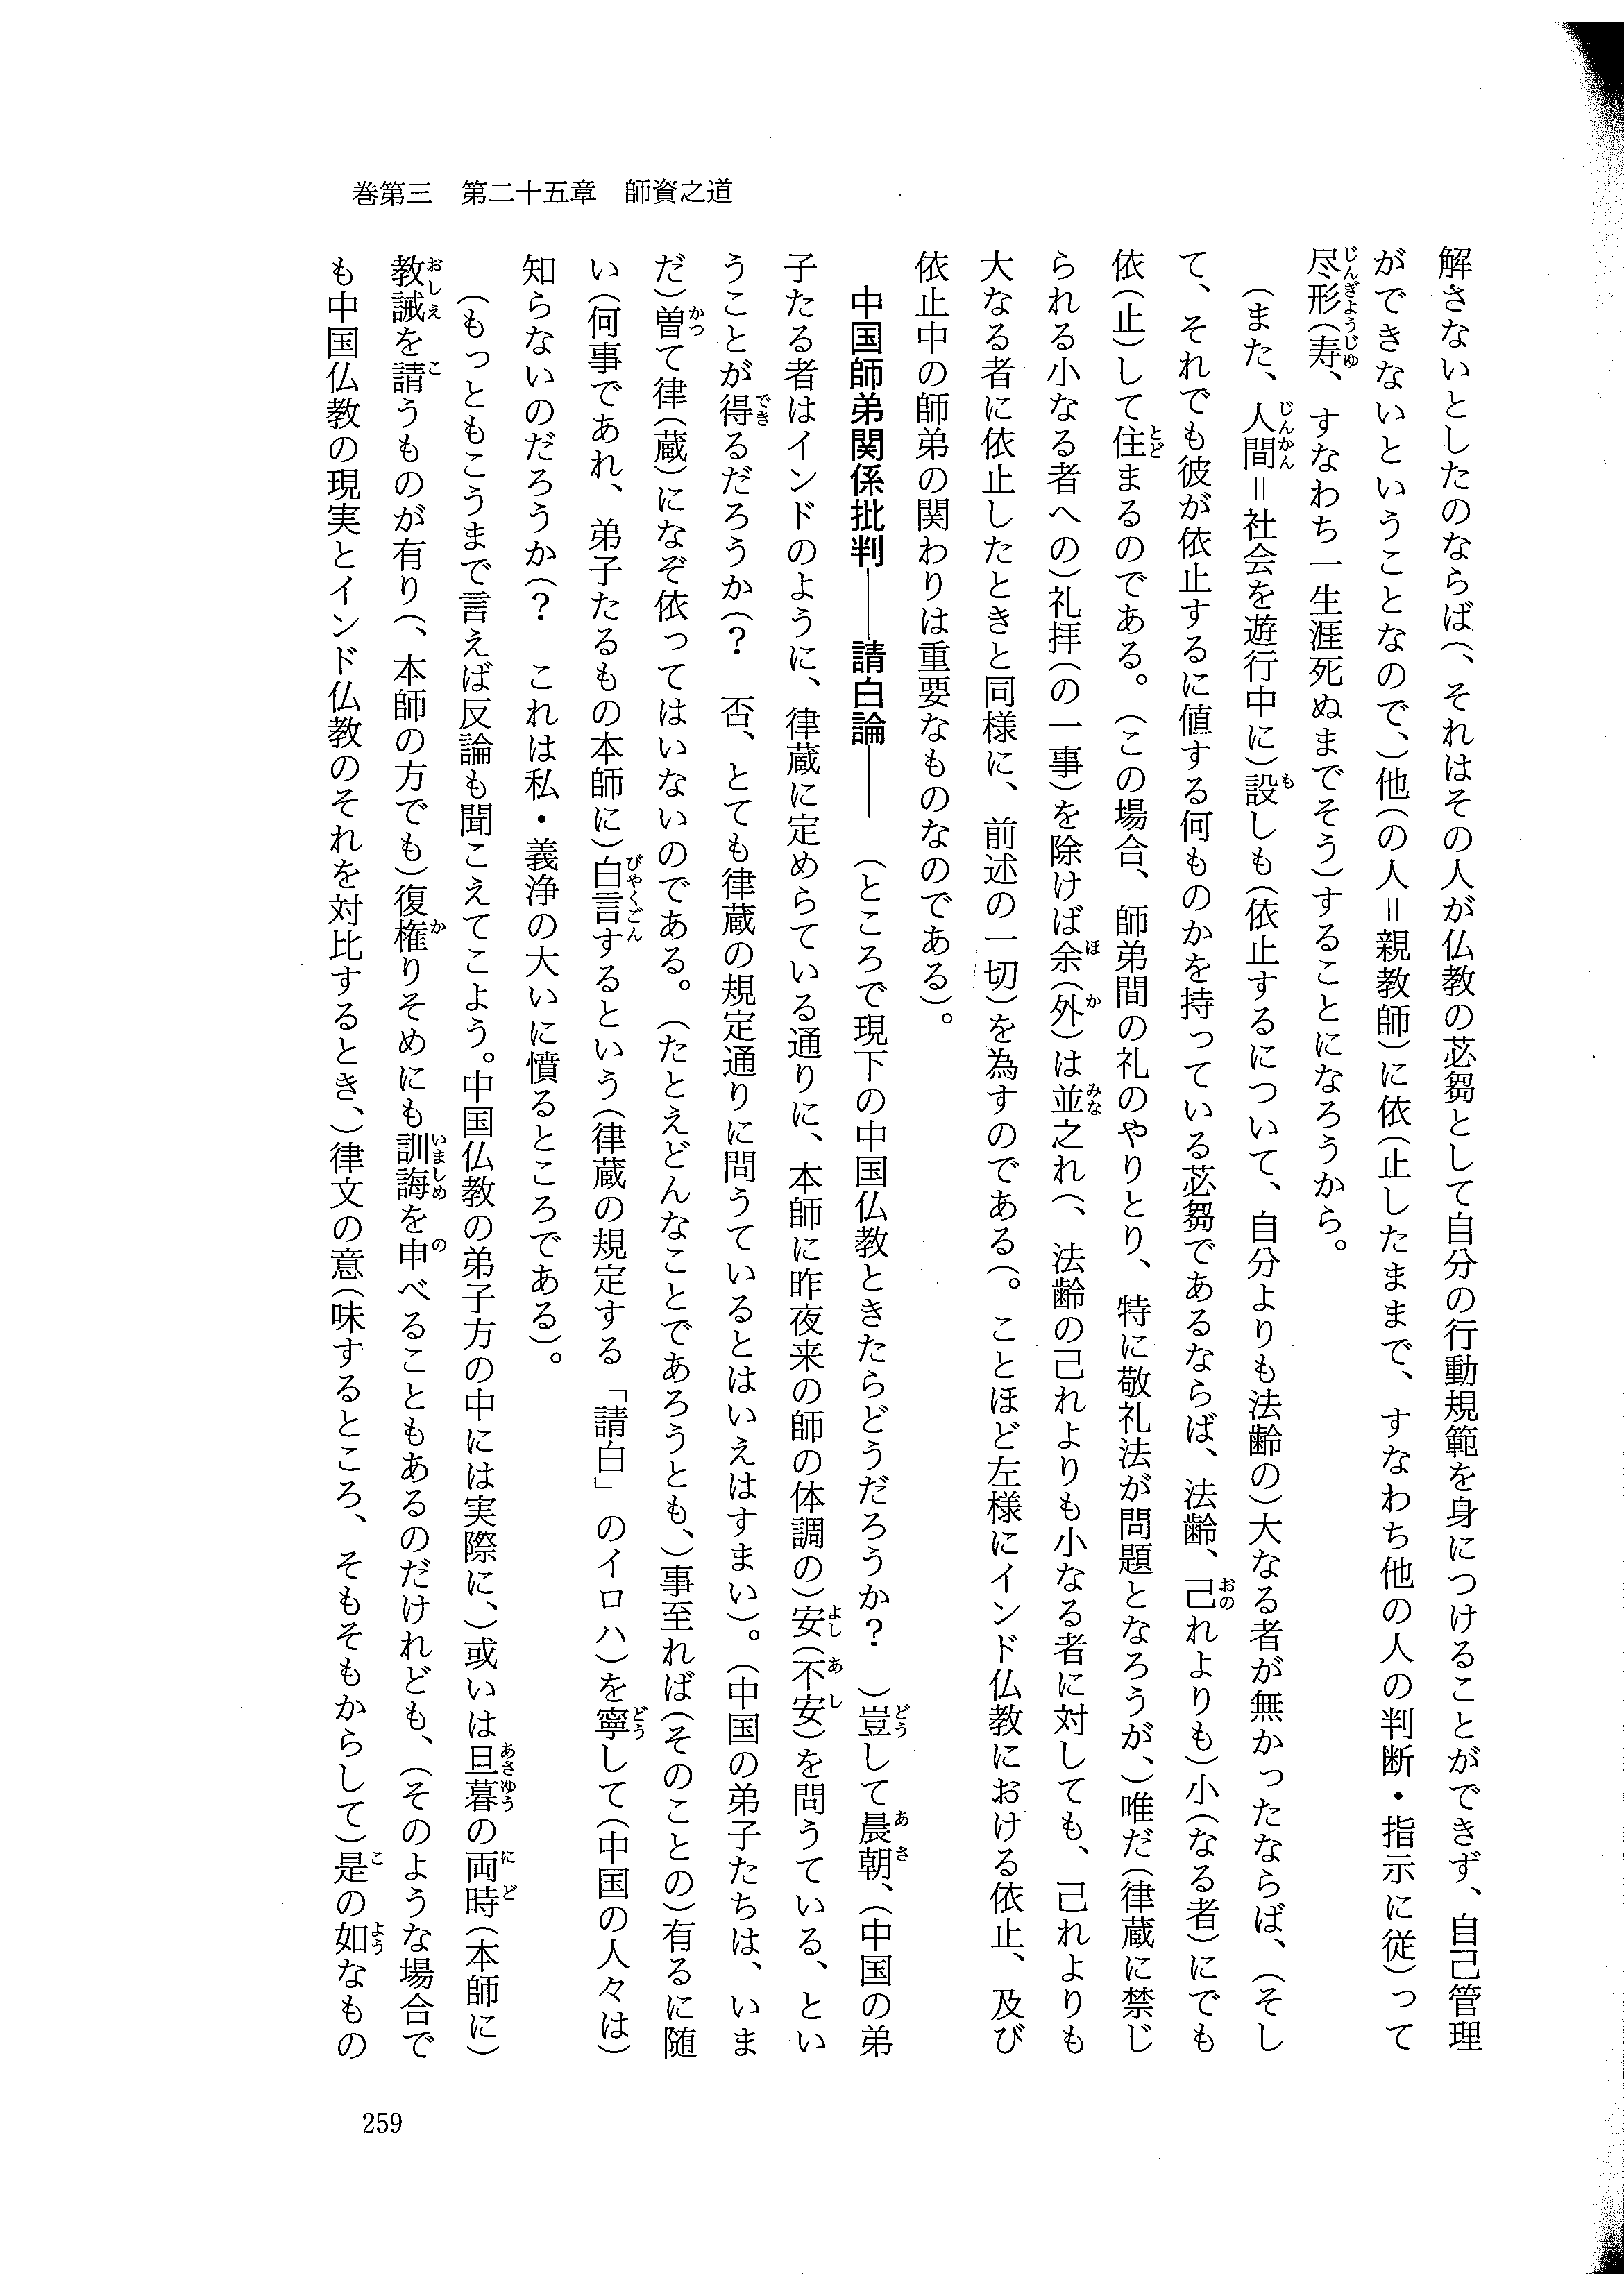 巻第三　第二十五章　師資之道
解さないとしたのならば(、それはその人が仏教の苾芻として自分の行動規範を身につけることができず、自己管理
ができないということなので、)他(の人＝親教師)に依(止したままで、すなわち他の人の判断・指示に従)って
尽形(寿、すなわち一生涯死ぬまでそう)することになろうから。
(また、人間＝社会を遊行中に)設しも(依止するについて、自分よりも法齢の)大なる者が無かったならば、(そし
て、それでも彼が依止するに値する何ものかを持っている苾芻であるならば、法齢、己れよりも)小(なる者)にでも
依(止)して住まるのである。(この場合、師弟間の礼のやりとり、特に敬礼法が問題となろうが、)唯だ(律蔵に禁じ
られる小なる者への)礼拝(の一事)を除けば余(外)は並之れ(、法齢の己れよりも小なる者に対しても、己れよりも
大なる者に依止したときと同様に、前述の一切)を為すのである(。ことほど左様にインド仏教における依止、及び
依止中の師弟の関わりは重要なものなのである)。
中国師弟関係批判――請白論――　(ところで現下の中国仏教ときたらどうだろうか？　)豈して晨朝、(中国の弟
子たる者はインドのように、律蔵に定めらている通りに、本師に昨夜来の師の体調の)安(不安)を問うている、とい
うことが得るだろうか(？　否、とても律蔵の規定通りに問うているとはいえはすまい)。(中国の弟子たちは、いま
だ)曽て律(蔵)になぞ依ってはいないのである。(たとえどんなことであろうとも、)事至れば(そのことの)有るに随
い(何事であれ、弟子たるもの本師に)白言するという(律蔵の規定する「請白」のイロハ)を寧して(中国の人々は)
知らないのだろうか(？　これは私・義浄の大いに憤るところである)。
(もっともこうまで言えば反論も聞こえてこよう。中国仏教の弟子方の中には実際に、)或いは旦暮の両時(本師に)
教誡を請うものが有り(、本師の方でも)復権りそめにも訓誨を申べることもあるのだけれども、(そのような場合で
も中国仏教の現実とインド仏教のそれを対比するとき、)律文の意(味するところ、そもそもからして)是の如なもの
259